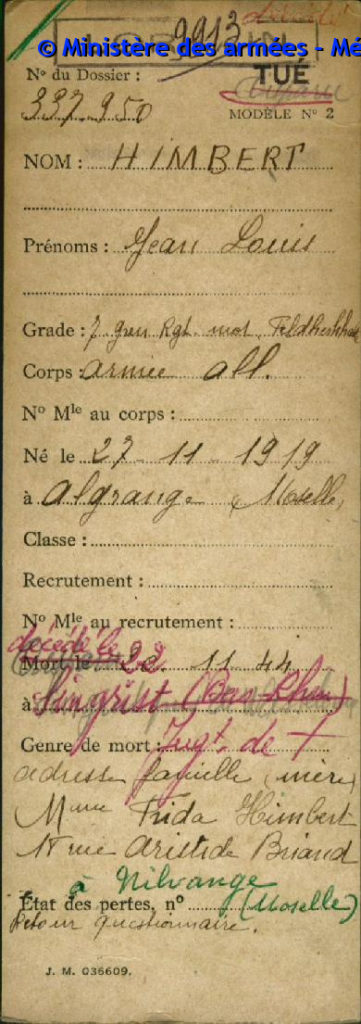 9913 décédé
© Ministère des armées - Mé
N° du Dossier :
TUÉ
337.950
MODÈLE N° 2
NOM : HIMBERT
Prénoms : Jean Louis
Grade : 7 Gren Rgt. mot. Feldherrnhalle
Corps : armée all.
N° Mle au corps :
Né le 27 - 11 - 1919
à Algrange (Moselle)
Classe :
Recrutement :
N° Mle au recrutement :
décédé le
Mort le 22 11 44
à Singrist (Bas-Rhin)
Genre de mort : Jugt. de †
adresse famille (mère)
Mme Frida Himbert
rue Aristide Briand
à Nilvange
État des pertes, n° (Moselle)
Retour questionnaire.
J. M. 036609.